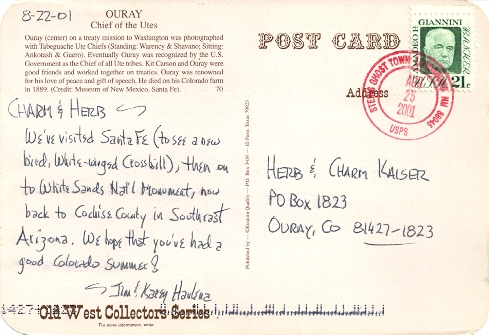 8-22-01
OURAY
Chief of the Utes
Ouray (center) on a treaty mission to Washington was photographed
with Tabeguache Ute Chiefs (Standing: Warency & Shavano; Sitting:
Ankotash & Guero). Eventually Ouray was recognized by the U.S.
Government as the Chief of all Ute tribes. Kit Carson and Ouray were
good friends and worked together on treaties. Ouray was renowned
for his love of peace and gift of speech. He died on his Colorado farm
in 1889. (Credit: Museum of New Mexico, Santa Fe). 70
CHARM & HERB ~
We've visited Santa Fe (to see a new
bird, White-winged Crossbill), then on
to White Sands Nat'l Monument, now
back to Cochise County in Southeast
Arizona. We hope that you've had a
good Colorado summer!
~ Jim & Karey
Old West Collectors Series
For more information, write
POST CARD
Address
GIANNINI
BANKER
21c
STEINS GHOST TOWN
AUG
23
2001
USPS
HERB & CHARM KAISER
PO BOX 1823
OURAY, CO 81427-1823